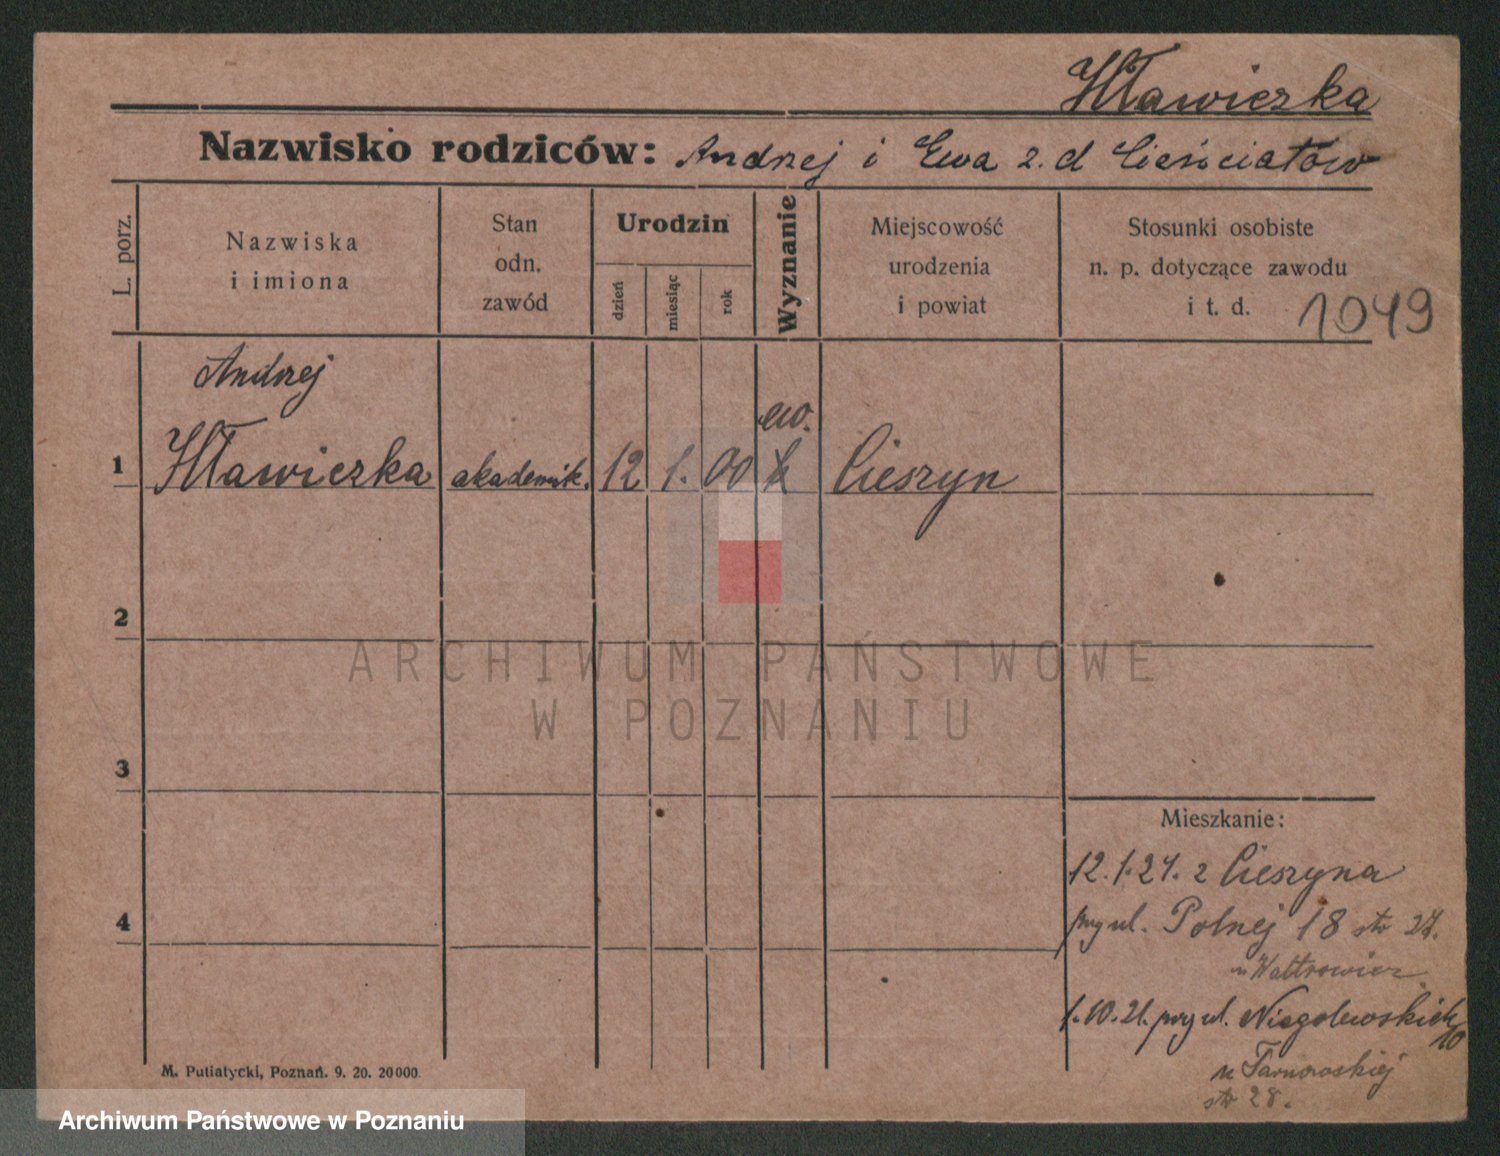 Hławiczka
Nazwisko rodziców: Andrzej i Ewa z. d Cieściałów
L. porz.
Nazwiska
i imiona
Stan
odn.
zawód
Urodzin
dzień
miesiąc
rok
Wyznanie
Miejscowość
urodzenia
i powiat
Stosunki osobiste
n. p. dotyczące zawodu
i t. d.
1049
Andrzej
ew.
1 Hławiczka akademik. 12 1. 00 k Cieszyn
2
ARCHIWUM PAŃSTWOWE
W POZNANIU
3
Mieszkanie:
12.1.21. z Cieszyna
4
przy ul. Polnej 18 str 27.
u
1.10.21. przy ul. Niegolewskich
10
u Tarnowskiej
str 28.
M. Putiatycki, Poznań. 9. 20. 20000.
Archiwum Państwowe w Poznaniu